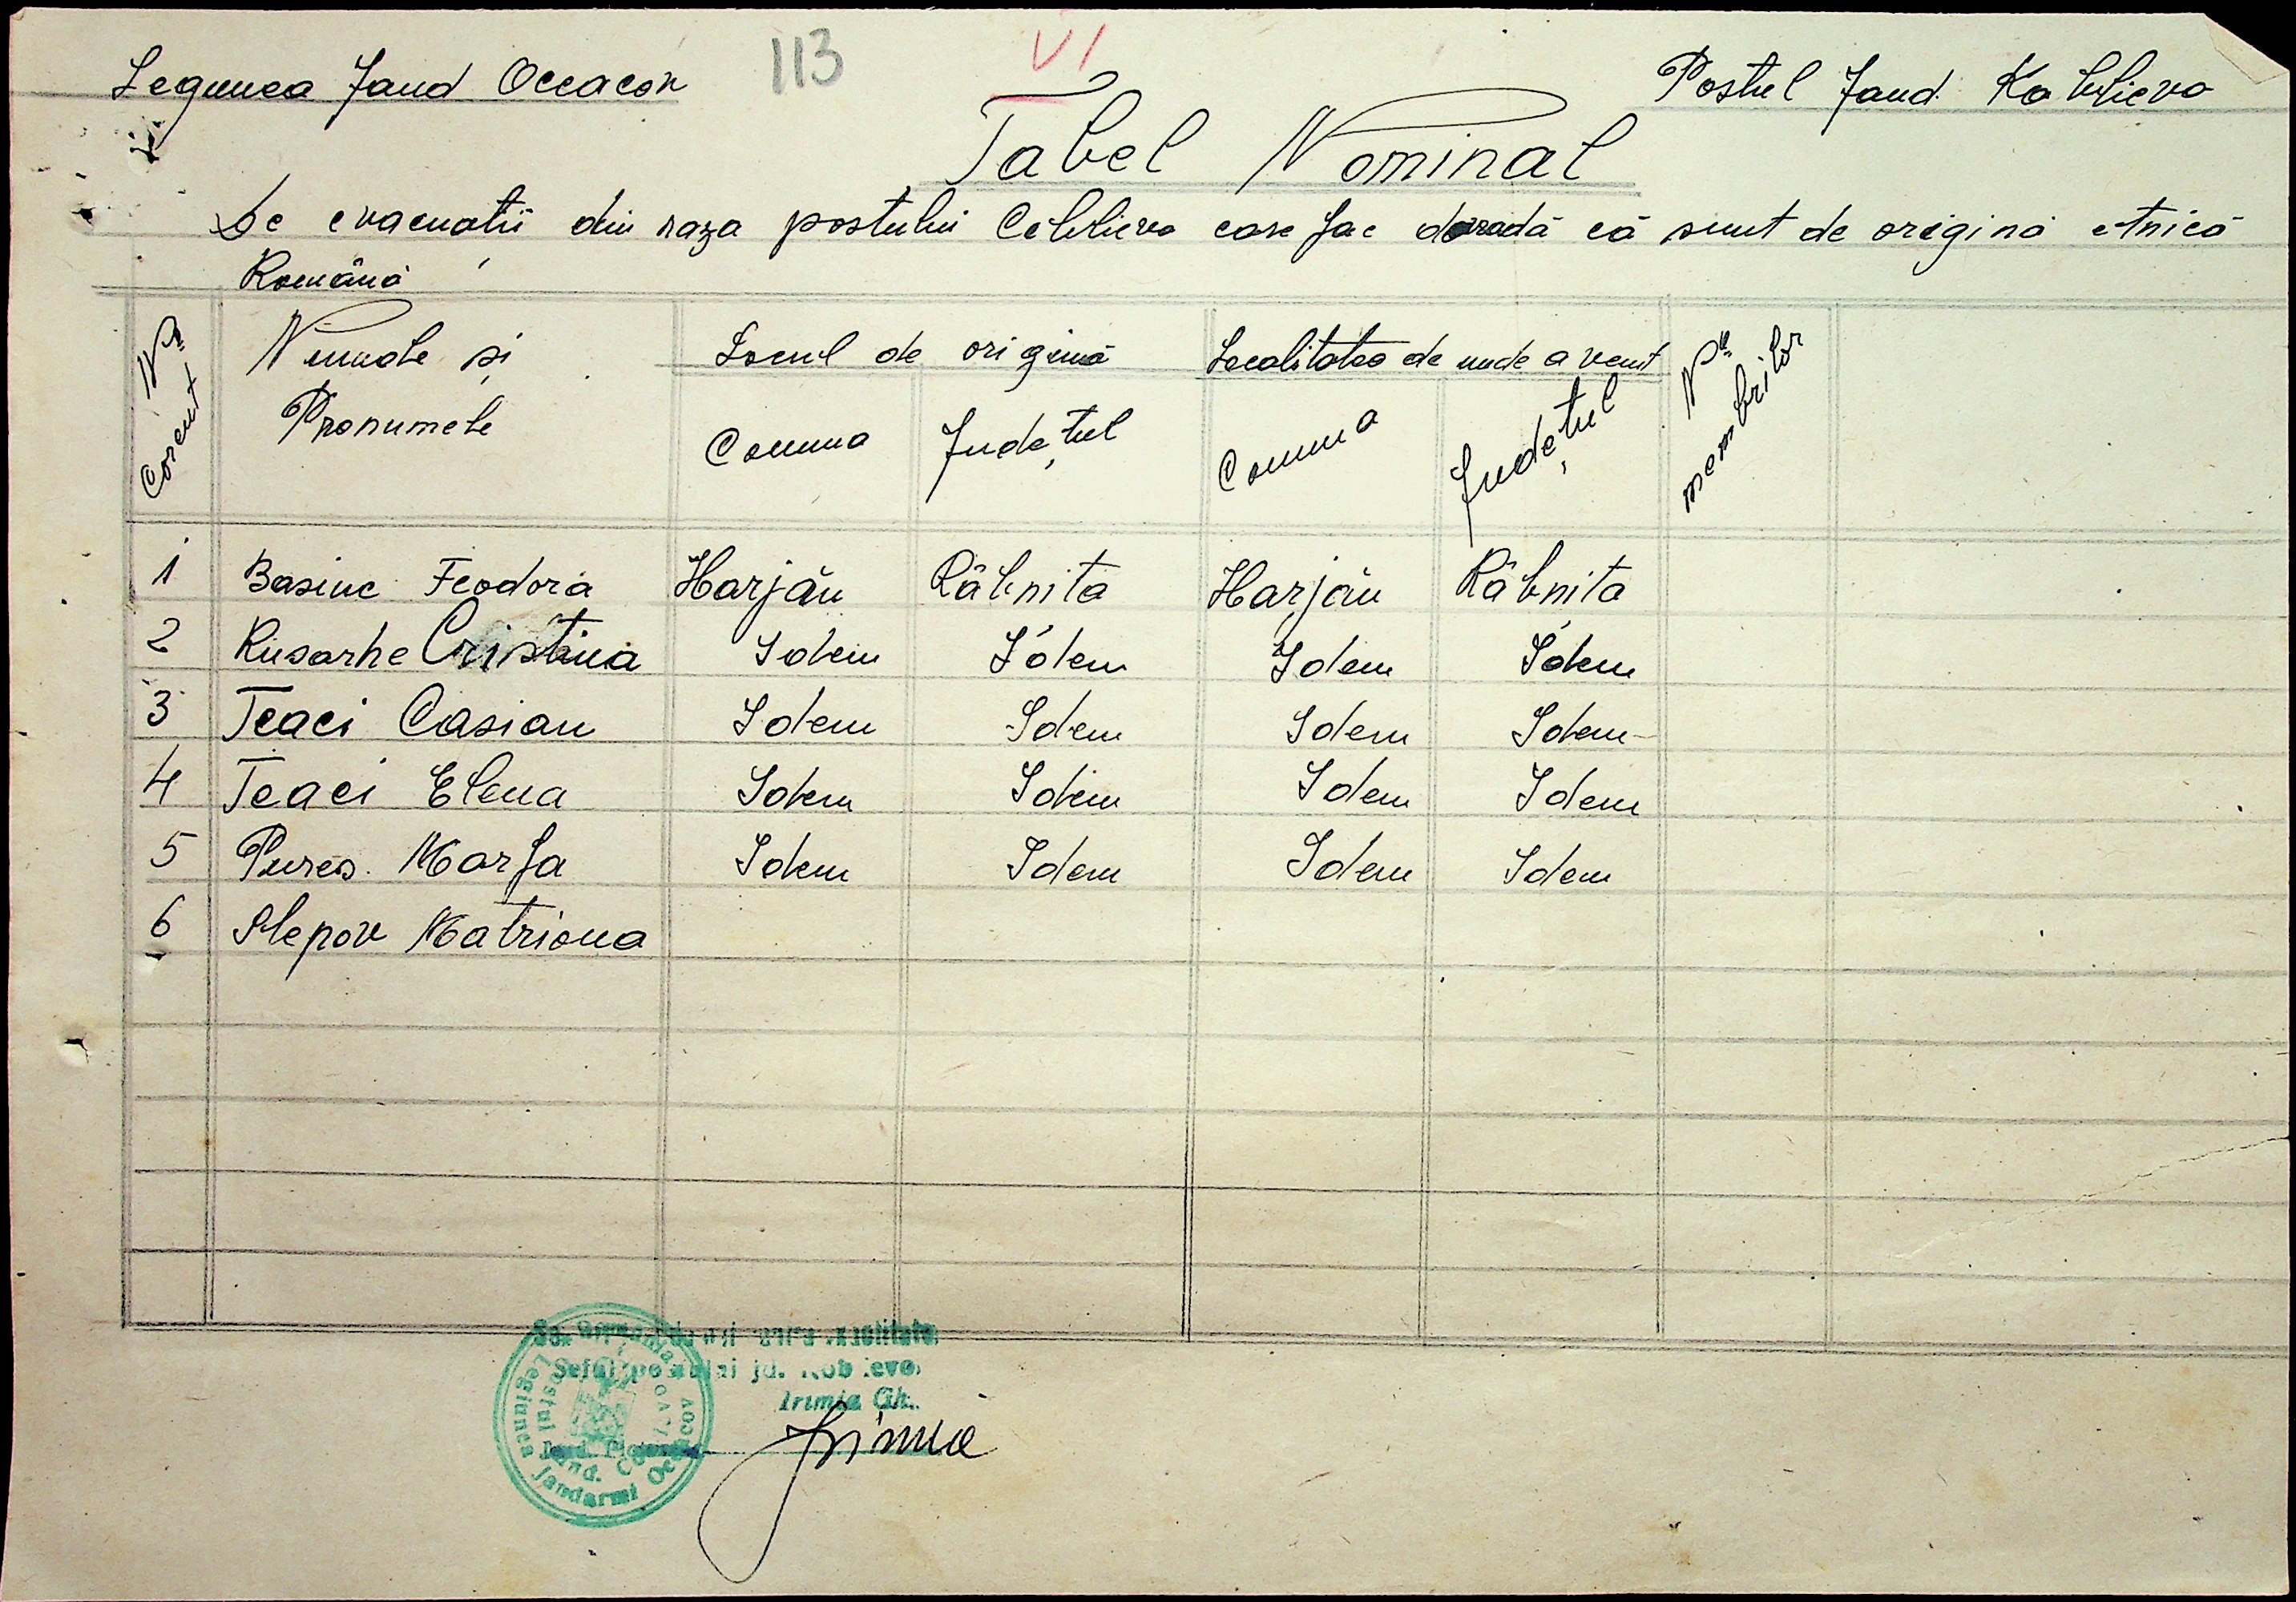 113
VI
Legiunea Jand Oceacov
Postul Jand. Koblievo
Tabel Nominal
De evacuatii din raza postului Coblievo care fac dovadă că sunt de origină etnică
Română
Nr. Corent
Numele și Pronumele
Locul de origină
Localitatea de unde a venit
Nr. membrilor
Comuna
Județul
Comuna
Județul
1 Basiuc Feodora Harjău Râbnita Harjău Râbnita
2 Rusarhe Cristina Idem Idem Idem Idem
3 Teaci Casian Idem Idem Idem Idem
4 Teaci Elena Idem Idem Idem Idem
5 Pures. Marfa Idem Idem Idem Idem
6 Slepov Matriona
Șeful postului jd. Koblevo
Irimia Gh.
Irimia
Legiunea Jandarmi Oceacov
Postul Jand.